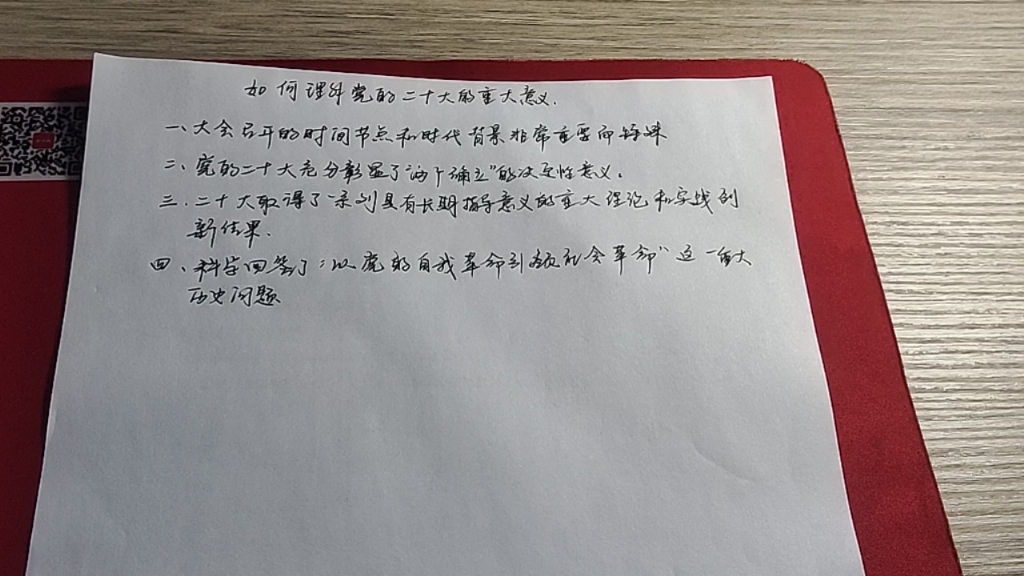 如何理解党的二十大的重大意义.
一、大会召开的时间节点和时代背景非常重要而特殊
二、党的二十大充分彰显了“两个确立”的决定性意义。
三.二十大取得了一系列具有长期指导意义的重大理论和实践创
新结果.
四、科学回答了:以党的自我革命引领社会革命”这一重大
历史问题